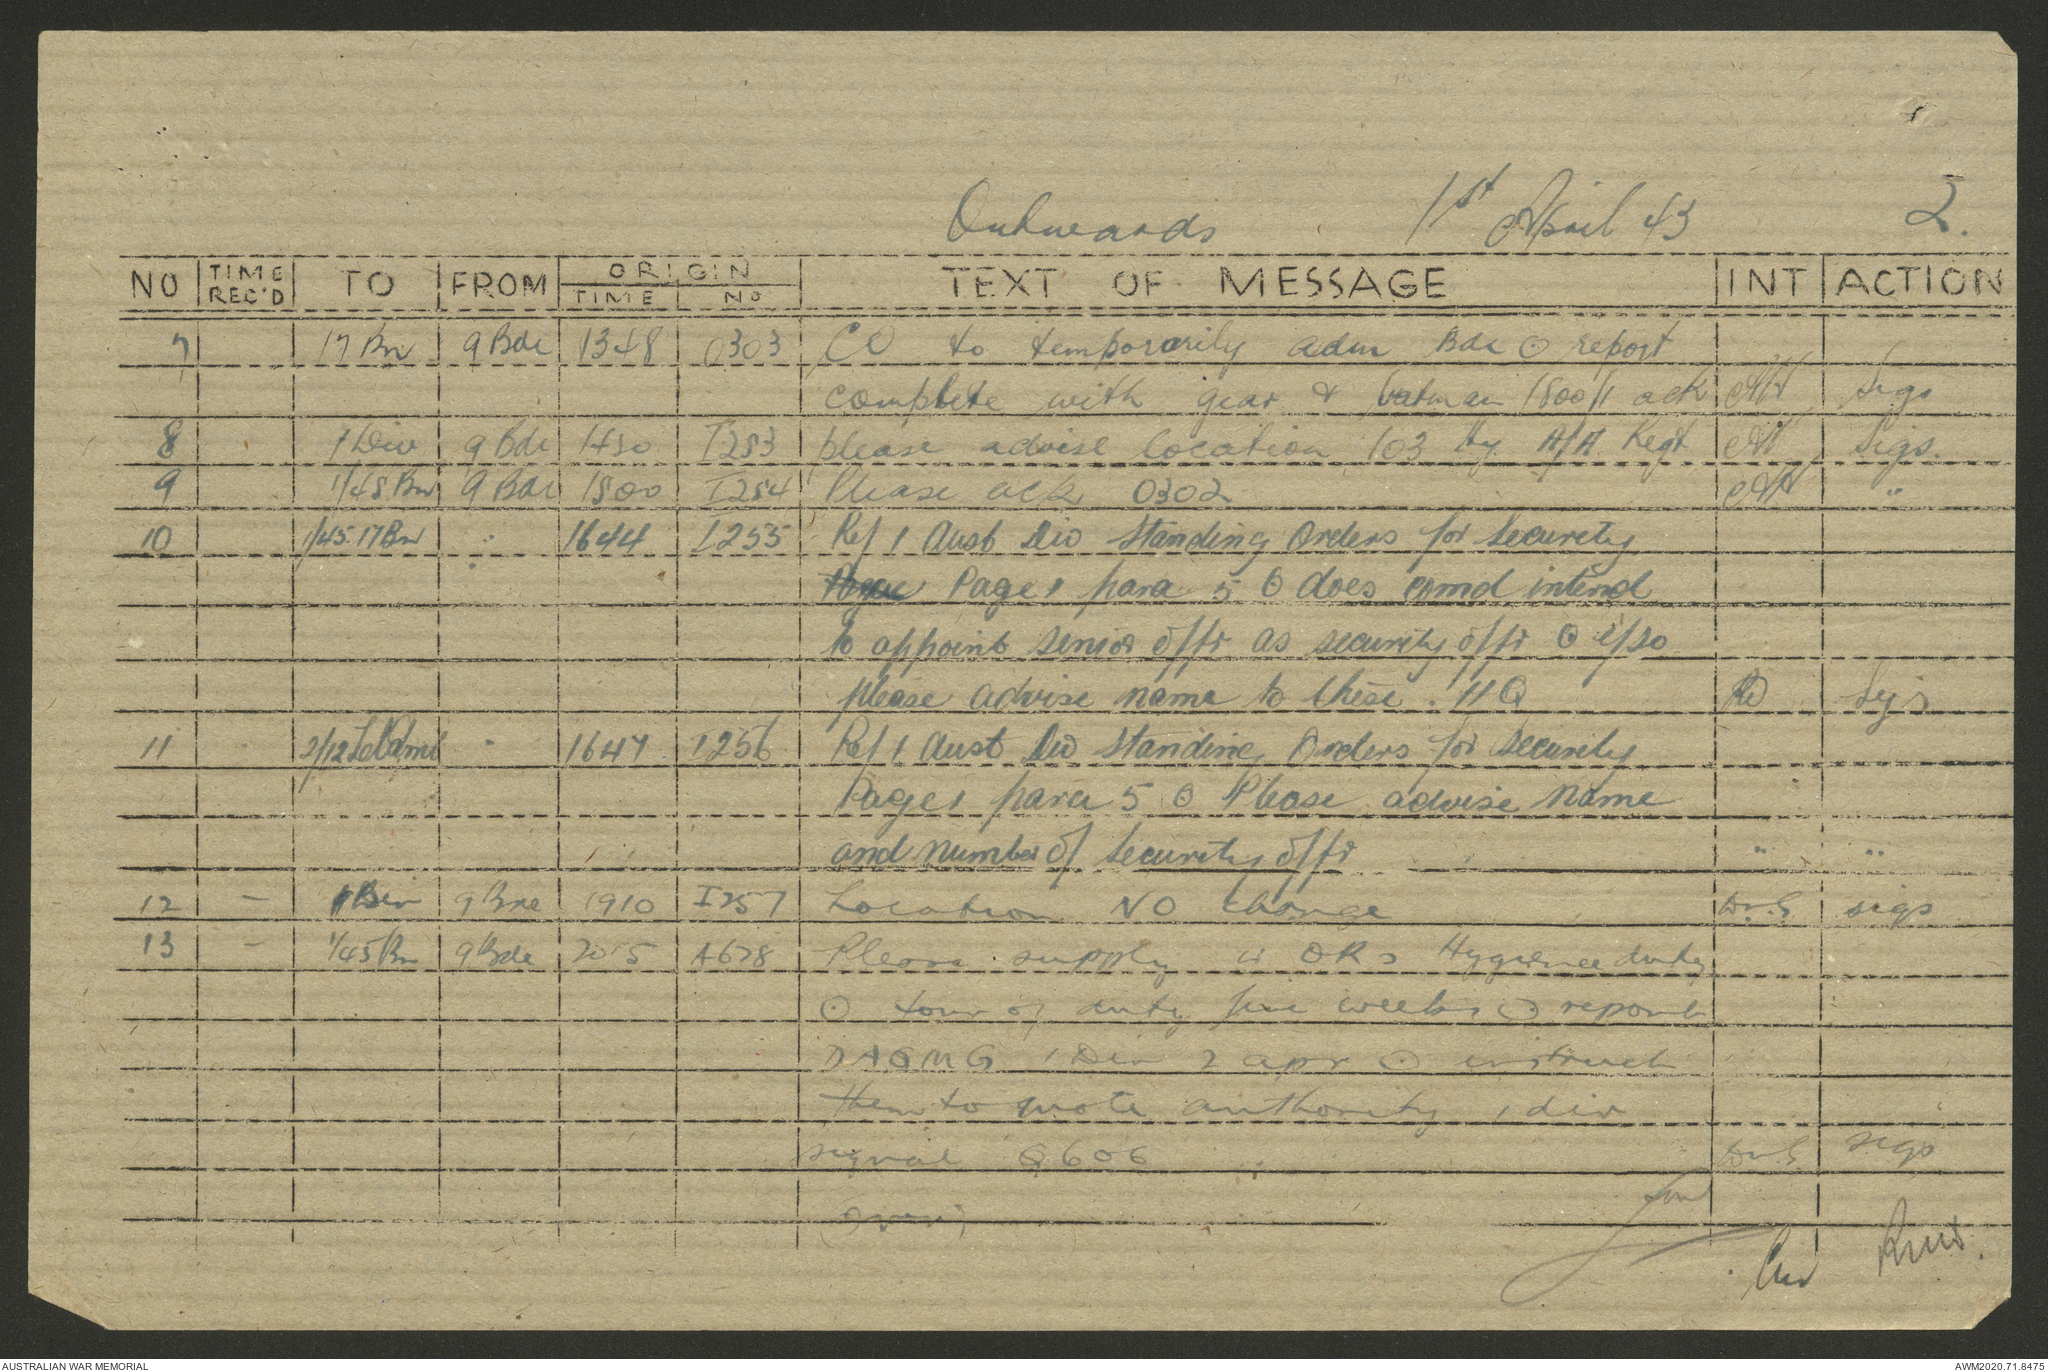 Outwards 1st April 43 2.
NO TIME REC'D TO FROM ORIGIN TIME NO TEXT OF MESSAGE INT ACTION
7 17 Bn 9 Bde 1348 0303 CO to temporarily adm Bde ⊙ report
complete with gear & batman 1800/1 ack Sigs
8 1 Div 9 Bde 1430 I253 please advise location 103 Hy A/A Regt Sigs.
9 1/45 Bn 9 Bde 1500 I254 Please ack 0302 "
10 1/45. 17 Bn " 1644 I255 Ref 1 Aust Div Standing Orders for Security
Page 1 para 5 ⊙ does comd intend
to appoint senior offr as security offr ⊙ if so
please advise name to these . HQ Sigs
11 2/12 " 1647 I256 Ref 1 Aust Div Standing Orders for Security
Page 1 para 5 ⊙ Please advise name
and number of Security offr " "
12 - 1 Div 9 Bde 1910 I257 Location NO change sigs
13 - 1/45 Bn 9 Bde 2015 A678 Please supply 4 ORs Hygiene duty
⊙ tour of duty five weeks ⊙ report
DAQMG 1 Div 2 apr ⊙ instruct
them to quote authority 1 div
signal Q606 sigs
AUSTRALIAN WAR MEMORIAL AWM2020.71.8475